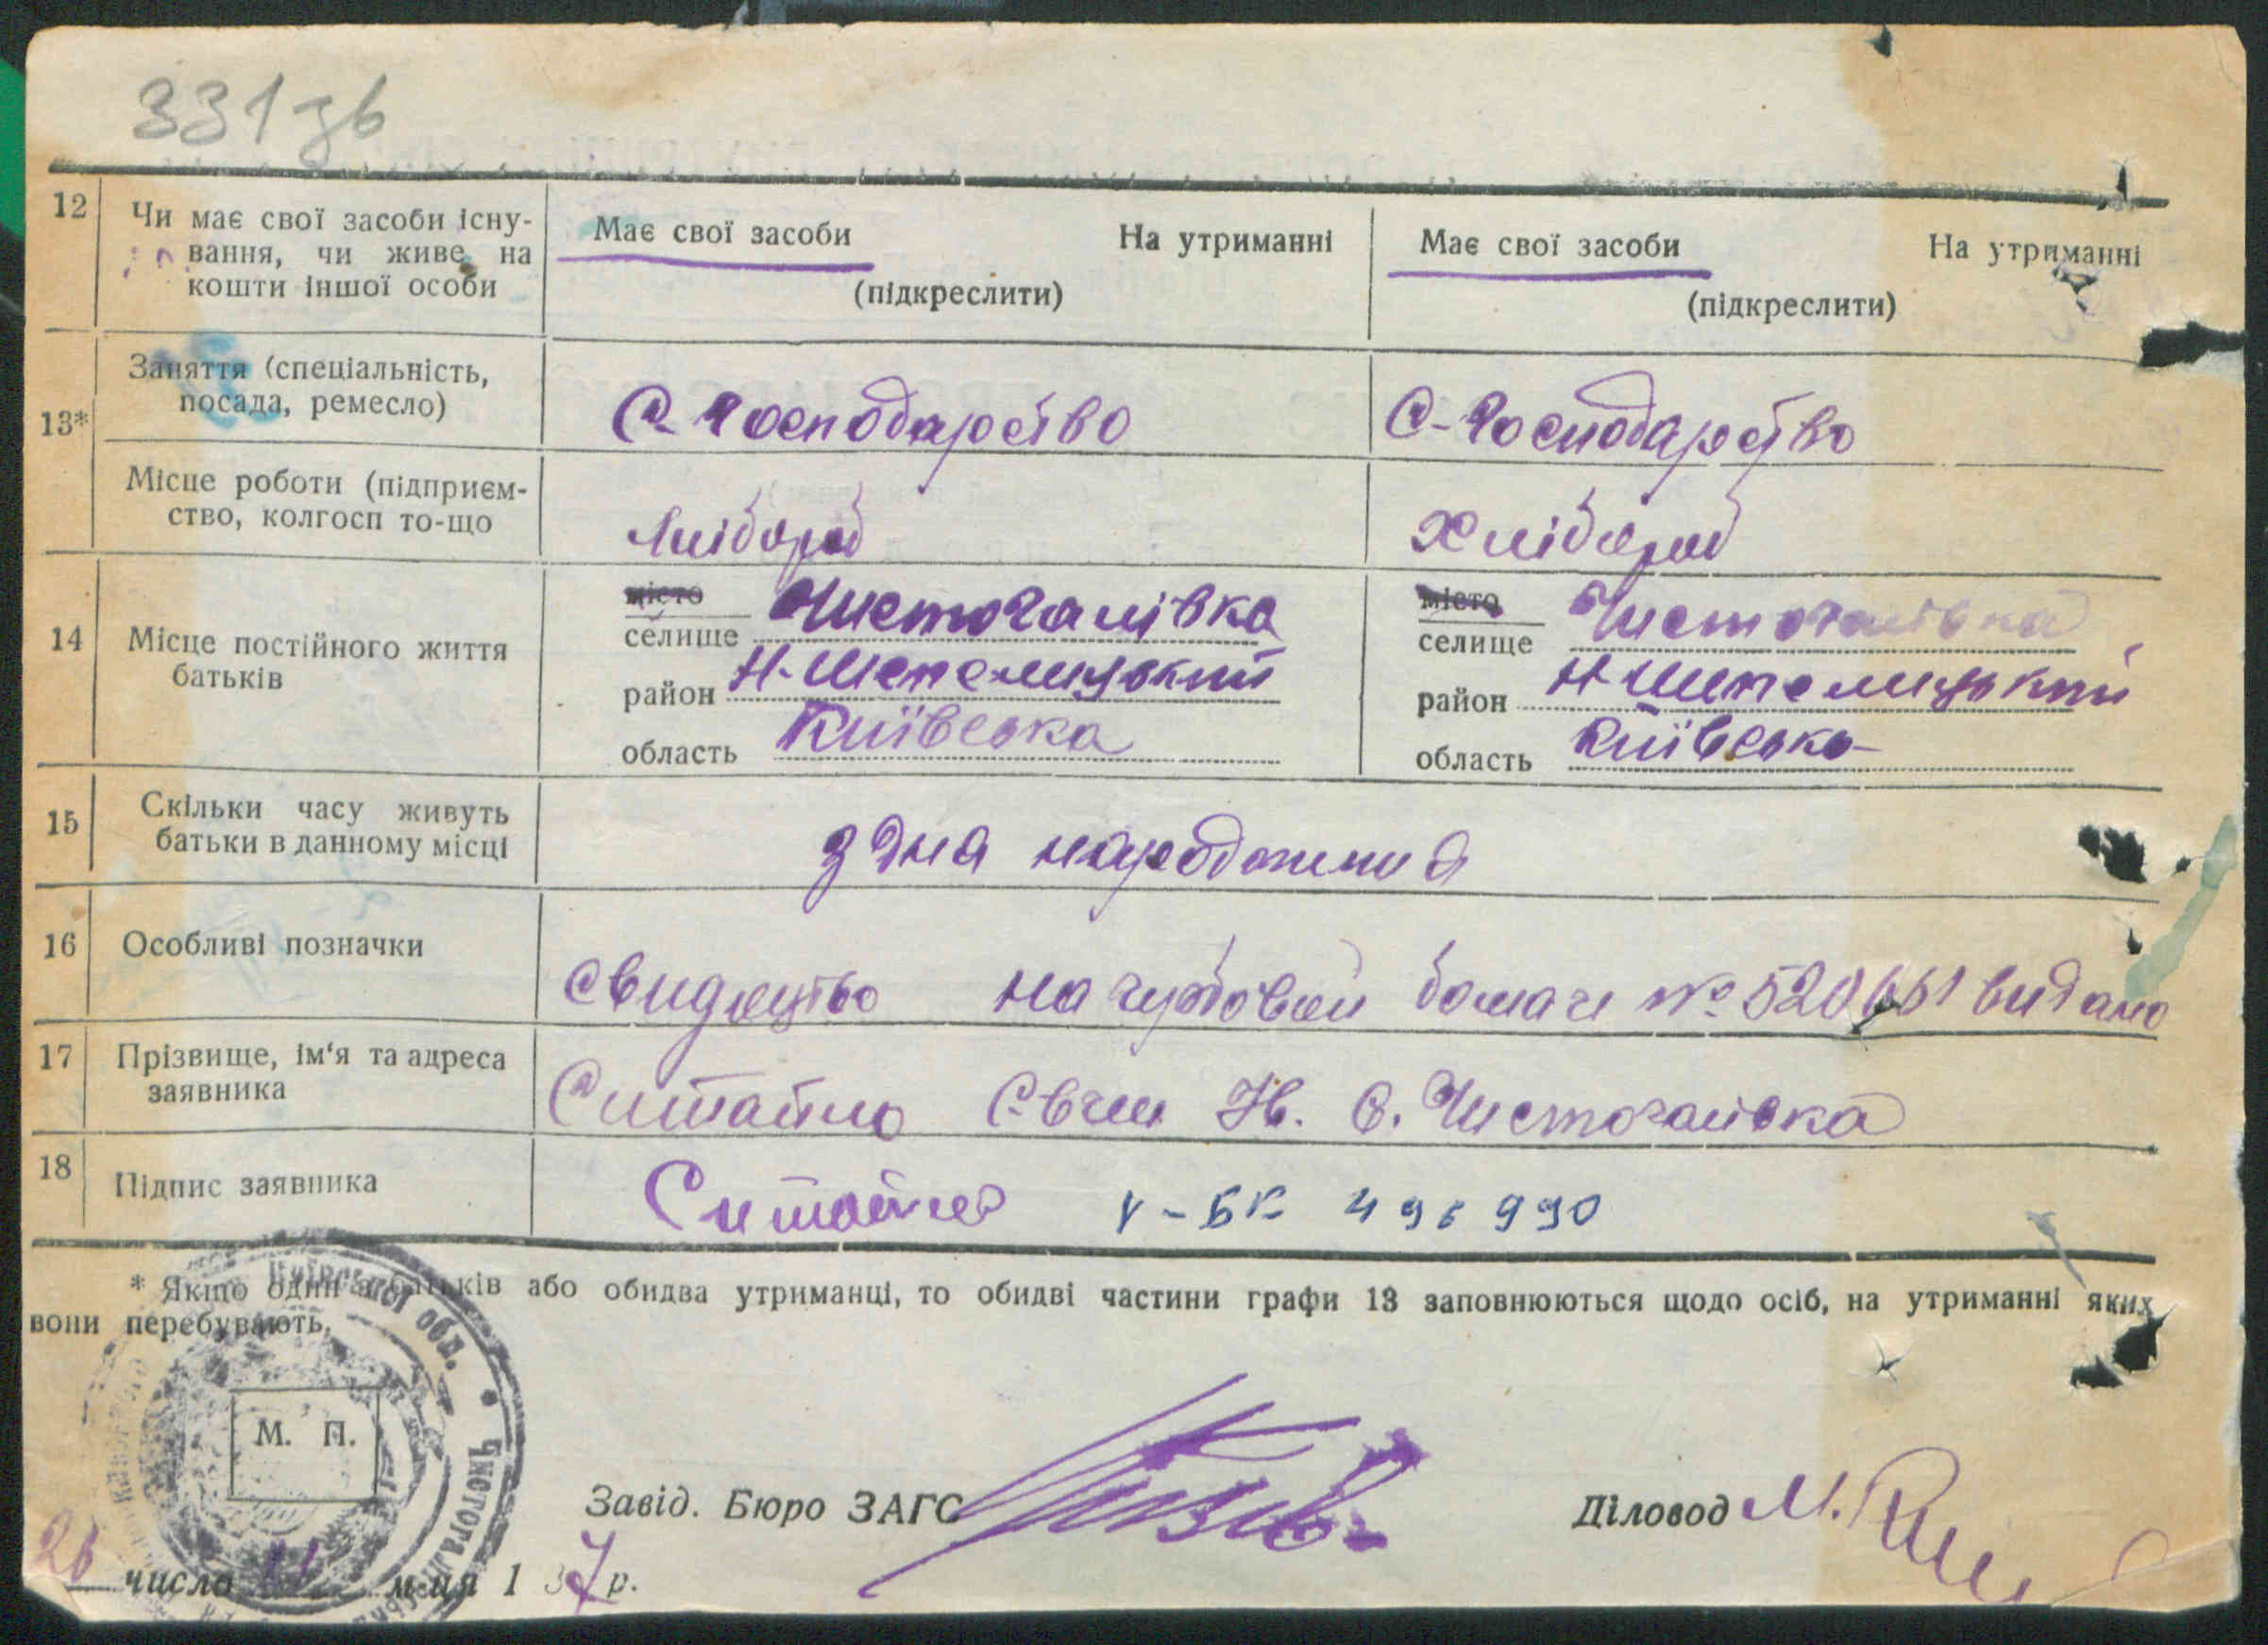 331 зв
12 Чи має свої засоби існу-
вання, чи живе на
кошти іншої особи
Має свої засоби На утриманні
(підкреслити)
Має свої засоби На утриманні
(підкреслити)
13*
Заняття (спеціальність,
посада, ремесло)
С-господарство
С-господарство
Місце роботи (підприєм-
ство, колгосп то-що
Хлібороб
Хлібороб
14 Місце постійного життя
батьків
місто
селище Чистогалівка
район Н-Шепелицький
область Київська
місто
селище Чистогалівка
район Н Шепелицький
область Київська
15 Скільки часу живуть
батьки в данному місці
з дня народження
16 Особливі позначки
Свидоцтво на гербовой бомаги № 520661 видано
17 Прізвище, ім'я та адреса
заявника
Ситайло Євген Ів. С. Чистогалівка
18 Підпис заявника
Ситайло V-БК 496990
* Якщо один з батьків або обидва утриманці, то обидві частини графи 13 заповнюються щодо осіб, на утриманні яких
вони перебувають.
Київської обл. • Чистогалівська
М. П.
Завід. Бюро ЗАГС
Діловод М.
26 число 11 м-ця 1 37 р.